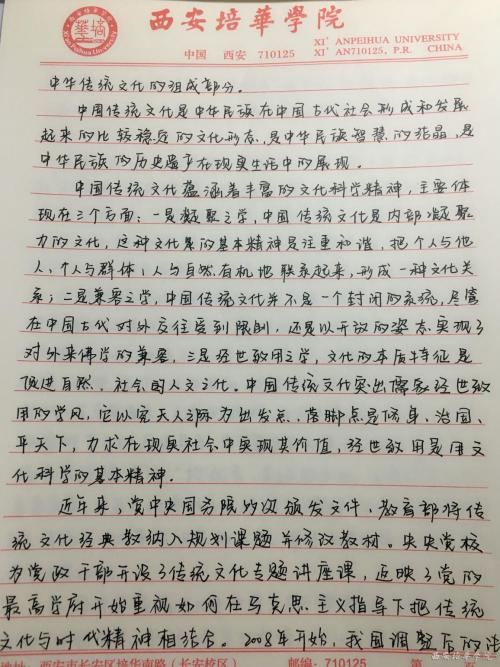 西安培華學院
中国 西安 710125
XI' ANPEIHUA UNIVERSITY
XI' AN710125, P.R. CHINA
中华传统文化的组成部分。
中国传统文化是中华民族在中国古代社会形成和发展
起来的比较稳定的文化形态,是中华民族智慧的结晶,是
中华民族的历史遗产在现实生活中的展现。
中国传统文化蕴涵着丰富的文化科学精神,主要体
现在三个方面:一是凝聚之学,中国传统文化是内部凝聚
力的文化,这种文化是的基本精神是注重和谐,把个人与他
人、个人与群体、人与自然有机地联系起来,形成一种文化关
系;二是兼容之学,中国传统文化并不是一个封闭的系统,尽管
在中国古代对外交往受到限制,还是以开放的姿态实现了
对外来佛学的兼容,三是经世致用之学,文化的本质特征是
促进自然、社会的人文之化。中国传统文化突出儒家经世致
用的学风,它以究天人之际为出发点,落脚点是修身、治国、
平天下,力求在现实社会中实现其价值,经世致用是用文
化科学的基本精神。
近年来,党中央国务院多次颁发文件、教育部将传
统文化经典教纳入规划课题并修改教材。中央党校
为党政干部开设了传统文化专题讲座课,反映了党的
最高学府开始重视如何在马克思主义指导下把传统
文化与时代精神相结合。2008年开始,我国调整后的法
西安市长安区培华南路(长安校区) 邮编:710125 第
西安培华学院